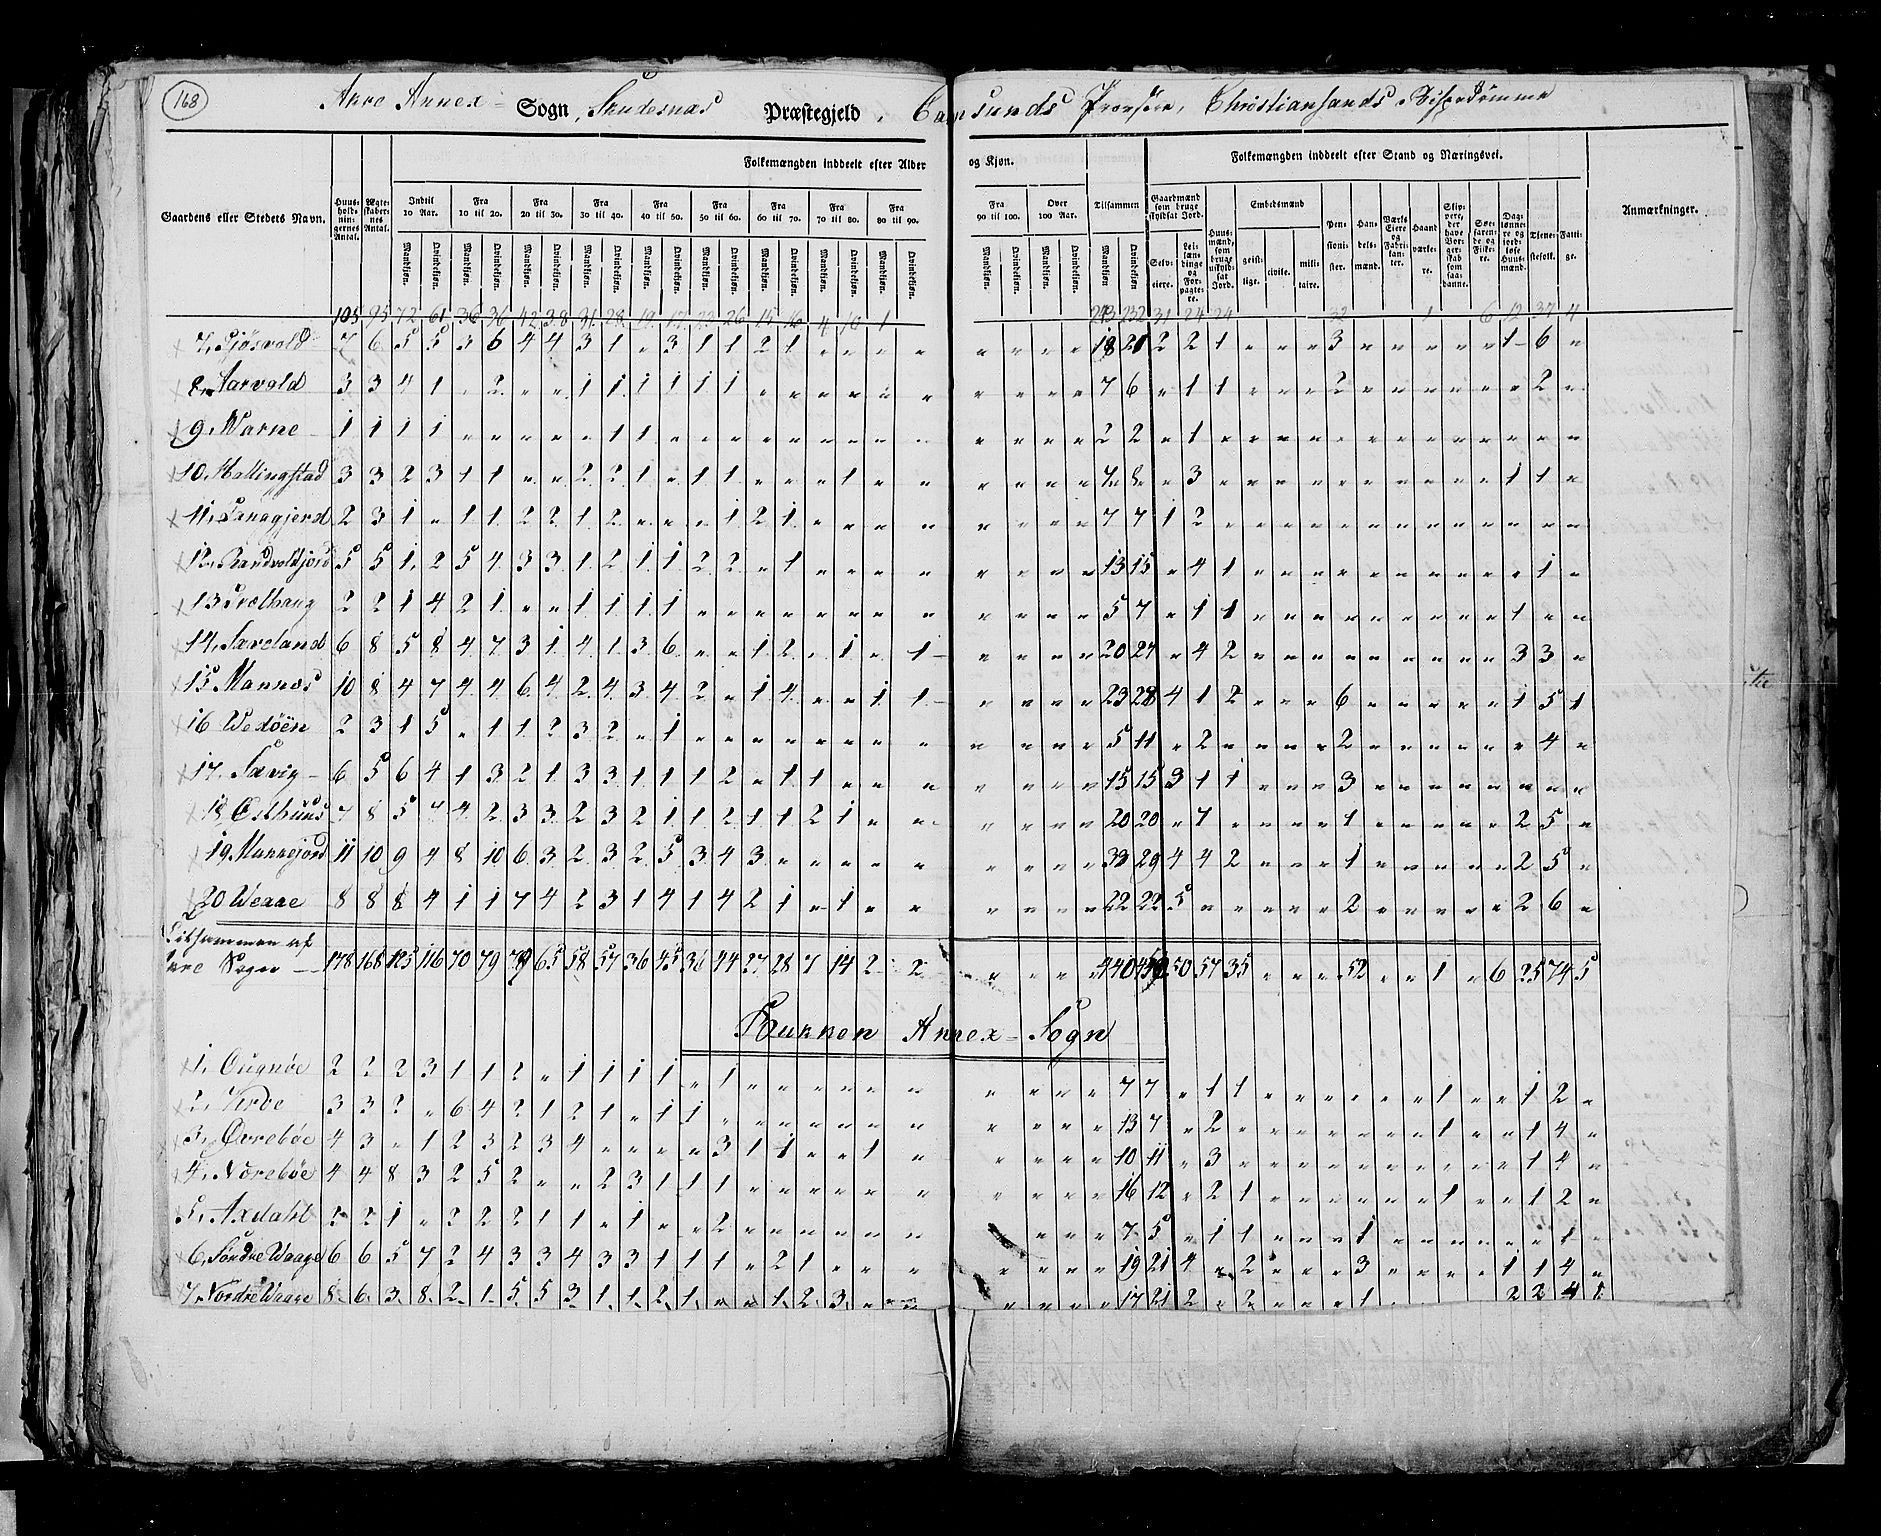 168
Akre Annex Sogn, Skudesnæs Præstegjeld, Carmsunds Provstie, Christiansands Bispedømme
Folkemængden inddeelt efter Alder og Kjøn. Folkemængden inddeelt efter Stand og Næringsvei.
Gaardens eller Stedets Navn. Huusholdningernes Antal. Ægteskabernes Antal. Indtil 10 Aar. Fra 10 til 20. Fra 20 til 30. Fra 30 til 40. Fra 40 til 50. Fra 50 til 60. Fra 60 til 70. Fra 70 til 80. Fra 80 til 90. Fra 90 til 100. Over 100 Aar. Tilsammen Gaardmænd som bruge skyldsat Jord. Huusmænd, som bruge uskyldsat Jord. Embedsmænd Pensionister. Handelsmænd. Værks Eiere og Fabrikanter. Haandværkere. Søefarende og Fiskere. Daglønnere og jordløse Huusmænd. Tjenestefolk. Fattige. Anmærkninger.
Mandkjøn. Qvindekjøn. Mandkjøn. Qvindekjøn. Mandkjøn. Qvindekjøn. Mandkjøn. Qvindekjøn. Mandkjøn. Qvindekjøn. Mandkjøn. Qvindekjøn. Mandkjøn. Qvindekjøn. Mandkjøn. Qvindekjøn. Mandkjøn. Qvindekjøn. Mandkjøn. Qvindekjøn. Mandkjøn. Qvindekjøn. Mandkjøn. Qvindekjøn. Selveiere. Leilændinge og Forpagtere. geistlige. civile. militaire.
105 95 72 61 36 36 42 38 31 28 19 17 23 26 15 16 4 10 1 213 232 31 24 24 32 1 6 12 37 4
7, Sjösvold 7 6 5 5 3 6 4 4 3 1 " 3 1 1 2 1 " " " " " " " " 18 21 2 2 1 " " " 3 " " " " " 1 6 "
8, Aarvold 3 3 4 1 " 2 " " 1 1 1 1 1 1 " " " " " " " " " " 7 6 " 1 1 " " " 2 " " " " " " 2 "
9, Warne 1 1 1 1 " " " " " 1 1 " " " " " " " " " " " " " 2 2 " 1 " " " " " " " " " " " " "
10, Hallingstad 3 3 2 3 1 1 " " 2 2 1 " 1 1 " " " 1 " " " " " " 7 8 " 3 " " " " " " " " " " 1 1 "
11, 2 3 1 " 1 1 2 2 1 2 " " " 1 2 1 " " " " " " " " 7 7 1 2 " " " " " " " " " " " " "
12, 5 5 1 2 5 4 3 3 1 2 1 1 2 2 " 1 " " " " " " " " 13 15 " 4 1 " " " " " " " " " " 1 "
13 2 2 1 4 2 1 " " 1 1 1 1 " " " " " " " " " " " " 5 7 " 1 1 " " " " " " " " " 1 " "
14, Sæveland 6 8 5 8 4 7 3 1 4 1 3 6 " " 1 2 " 1 " 1 " " " " 20 27 " 4 2 " " " " " " " " " 3 3 "
15 Mannes 10 8 4 7 4 4 6 4 2 4 3 4 2 " 1 4 " " 1 1 " " " " 23 28 4 1 2 " " " 6 " " " " " 1 5 1
16 Wedöen 2 3 1 5 " 1 1 2 3 2 " 1 " " " " " " " " " " " " 5 11 " 2 " " " " 2 " " " " " " 4 "
17, Sævig 6 5 6 4 1 3 2 1 3 3 1 1 1 2 " 1 1 " " " " " " " 15 15 3 1 1 " " " 3 " " " " " " " "
18 Østhuus 7 8 5 7 4 2 3 3 2 3 2 1 1 2 1 1 2 1 " " " " " " 20 20 " 7 " " " " 1 " " " " " 2 5 "
19 Munkejord 11 10 9 4 8 10 6 3 2 3 2 5 3 4 3 " " " " " " " " " 33 29 4 4 2 " " " 1 " " " " " 2 5 "
20 Weaae 8 8 8 4 1 1 7 4 2 3 1 4 1 4 2 1 " 1 " " " " " " 22 22 5 " " " " " 2 " " " " " 2 6 "
Tilsammen af Akre Sogn 178 168 125 116 70 79 79 65 58 57 36 45 36 44 27 28 7 14 2 2 " " " " 440 450 50 57 35 " " " 52 " " 1 " 6 25 74 5
Bukken Annex-Sogn
1, Ougnöe 2 2 2 3 1 1 2 " 1 1 1 1 " 1 " " " " " " " " " " 7 7 " 1 1 " " " " " " 1 " " 1 2 "
2, 3 3 2 " 6 4 2 1 2 1 " 1 1 " " " " " " " " " " " 13 7 " 2 " " " " " " " 1 " " 1 4 "
3, Övreböe 4 3 " 1 2 3 2 3 4 " " " " 3 1 1 " 1 " " " " " " 10 11 " 3 " " " " " " " " " " 1 4 "
4, Nöreböe 4 4 8 3 2 5 2 " " 2 3 1 1 1 " " " " " " " " " " 16 12 " 2 1 " " " " " " 1 " " 1 2 "
5, Axdahl 2 2 1 " 2 2 2 1 1 " 1 " " 2 " " " " " " " " " 7 5 " 1 1 " " " 1 " " " " " " 1 "
6, Söndre Waage 6 6 5 7 2 4 3 3 4 3 3 1 1 1 " 2 1 " " " " " " " 19 21 4 " 2 " " " 3 " " " " 1 1 4 "
7, Nordre Waage 8 6 3 8 2 1 5 5 3 1 1 2 1 " " 1 2 3 " " " " " " 17 21 2 " 2 " " " 1 2 2 4 1